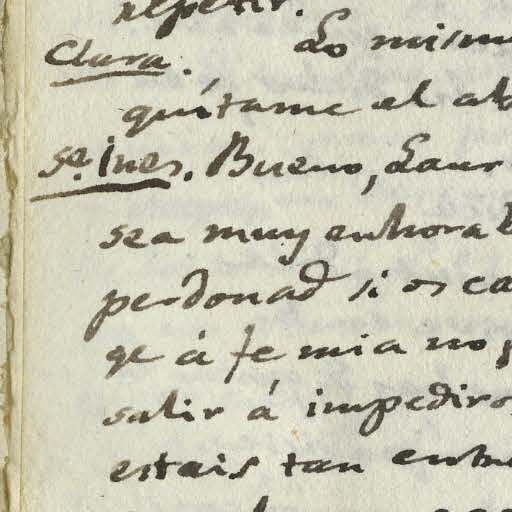 repetir.
Clara. Lo mismo
quítame el ab
Sª. Ines. Bueno, Laur
sea muy enhorab
perdonad si os ca
qe á fe mia no p
salir á impediros
estais tan entre